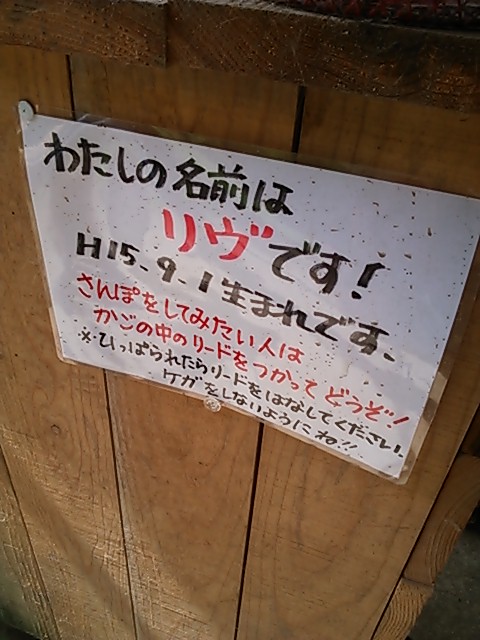 わたしの名前は
リヴです!
H15.9.1生まれです.
さんぽをしてみたい人は
かごの中のリードをつかってどうぞ!!
※ひっぱられたらリードをはなしてください.
ケガをしないようにね!!